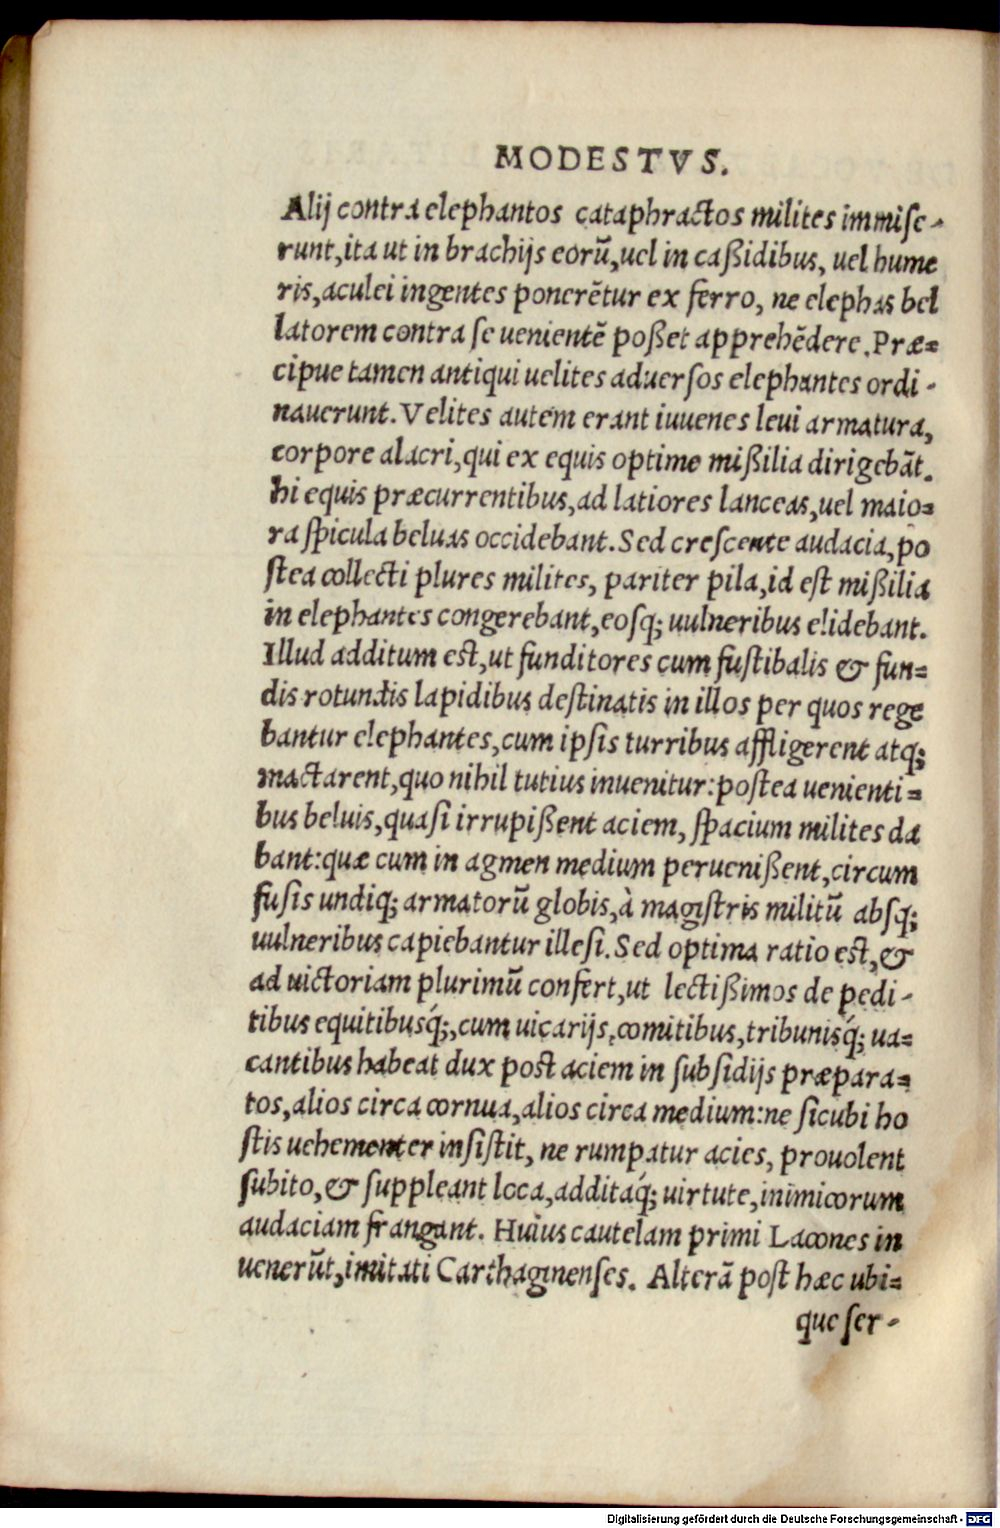 MODESTVS.
Alij contra elephantos cataphractos milites immiſe-
runt,ita ut in brachijs eorũ,uel in caßidibus, uel hume
ris,aculei ingentes ponerẽtur ex ferro, ne elephas bel
latorem contra ſe uenientẽ poßet apprehẽdere.Præ=
cipue tamen antiqui uelites aduerſos elephantes ordi-
nauerunt.Velites autem erant iuuenes leui armatura,
corpore alacri,qui ex equis optime mißilia dirigebãt.
hi equis præcurrentibus,ad latiores lanceas,uel maio=
ra ſpicula beluas occidebant.Sed creſcente audacia,po
ſtea collecti plures milites, pariter pila,id eſt mißilia
in elephantes congerebant,eoſq; uulneribus elidebant.
Illud additum eſt,ut funditores cum fuſtibalis & fun=
dis rotundis lapidibus deſtinatis in illos per quos rege
bantur elephantes,cum ipſis turribus affligerent atq;
mactarent,quo nihil tutius inuenitur:poſtea uenienti=
bus beluis,quaſi irrupißent aciem, ſpacium milites da
bant:quæ cum in agmen medium perueniſſent,circum
fuſis undiq; armatorũ globis,à magiſtris militũ abſq;
uulneribus capiebantur illeſi.Sed optima ratio eſt,&
ad uictoriam plurimũ confert,ut lectißimos de pedi-
tibus equitibusq́;,cum uicarijs,comitibus,tribunisq́; ua=
cantibus habeat dux poſt aciem in ſubſidijs præpara=
tos,alios circa cornua,alios circa medium:ne ſicubi ho
ſtis uehementer inſiſtit, ne rumpatur acies, prouolent
ſubito,& ſuppleant loca,additaq́; uirtute,inimicorum
audaciam frangant. Huius cautelam primi Lacones in
uenerũt,imitati Carthaginenſes. Alterã poſt hæc ubi=
que ſer-
Digitalisierung gefördert durch die Deutsche Forschungsgemeinschaft - DFG